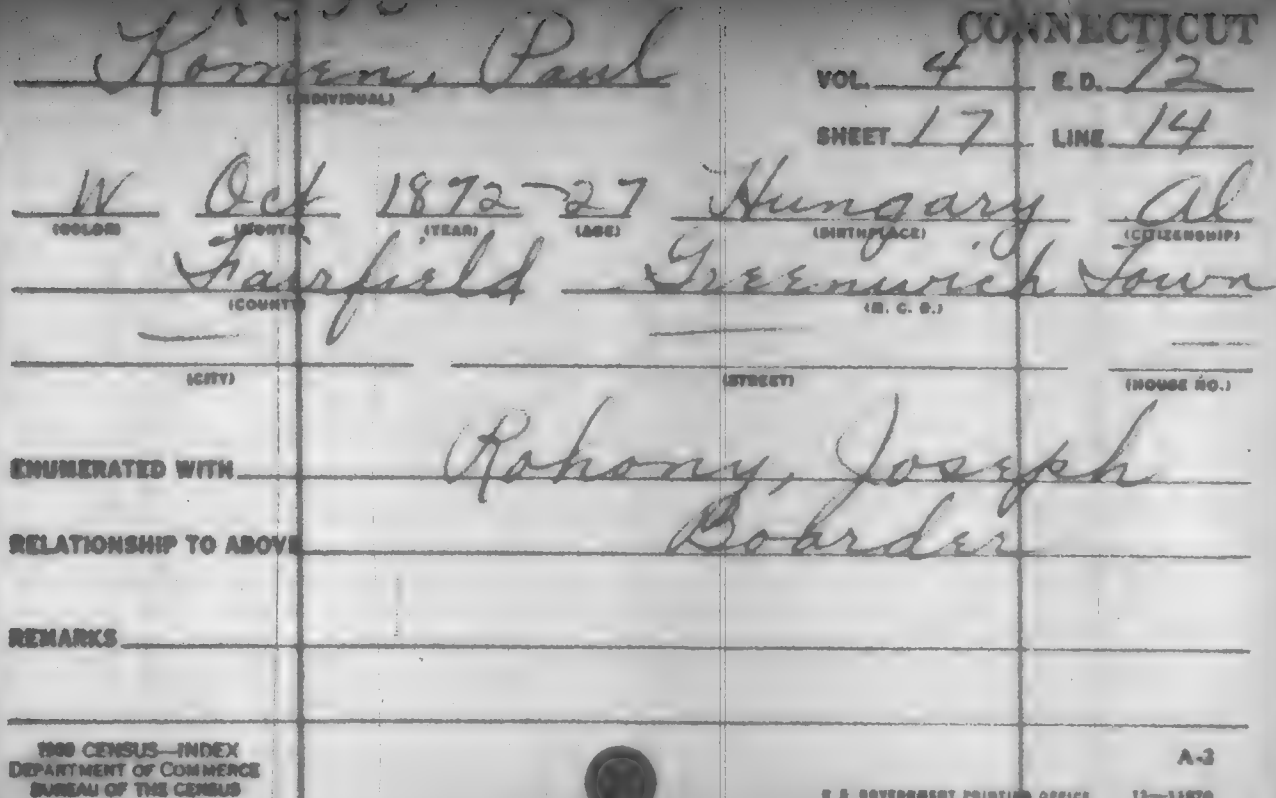 CONNECTICUT
Komen, Paul
(INDIVIDUAL)
VOL. 4 E. D. 12
SHEET 17 LINE 14
W Oct 1872 - 27 Hungary Al
(COLOR) (MONTH) (YEAR) (AGE) (BIRTHPLACE) (CITIZENSHIP)
Fairfield Greenwich Town
(COUNTY) (M. C. D.)
(CITY) (STREET) (HOUSE NO.)
ENUMERATED WITH Rohony, Joseph
RELATIONSHIP TO ABOVE Boarder
REMARKS
1900 CENSUS—INDEX
DEPARTMENT OF COMMERCE
BUREAU OF THE CENSUS
A-2
U. S. GOVERNMENT PRINTING OFFICE